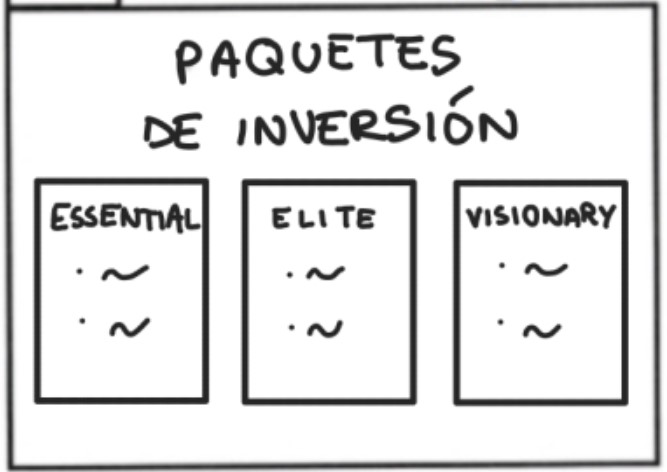 PAQUETES
DE INVERSIÓN
ESSENTIAL
ELITE
VISIONARY